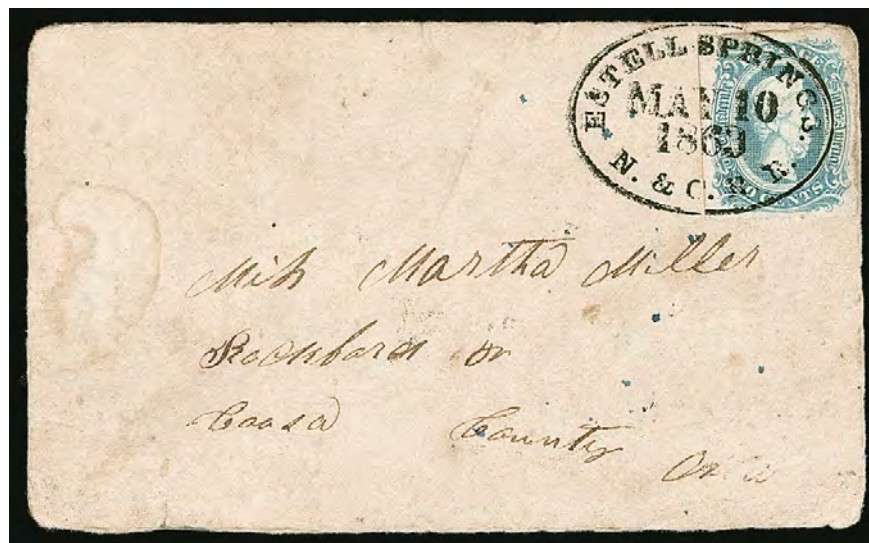 ESTELL SPRINGS.
MAY 10
1863
N. & C. R. R.
CENTS
Miss Martha Miller
Rockford
Coosa County